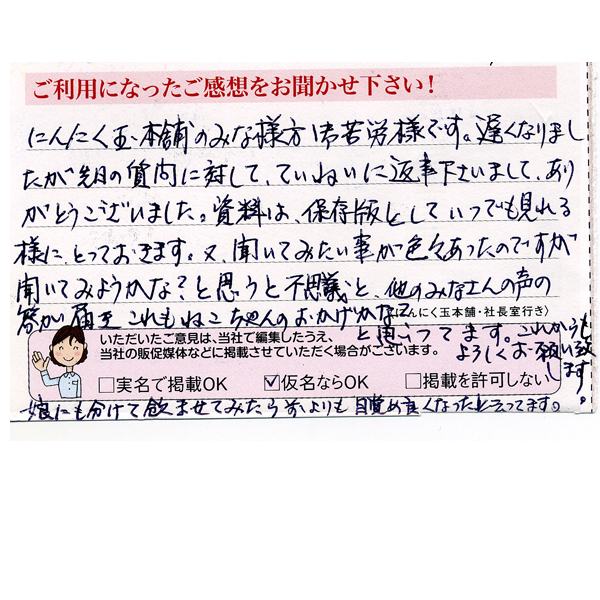 ご利用になったご感想をお聞かせ下さい!
にんにく玉本舗のみな様方 御苦労様です。遅くなりまし
たが先日の質問に対して、ていねいに返事下さいまして、あり
がとうございました。資料は、保存版としていつでも見れる
様に、とっておきます。又、聞いてみたい事が色々あったのですが
聞いてみようかな?と思うと不思議と、他のみなさんの声の
答が届き これもねこちゃんのおかげかな?
にんにく玉本舗・社長室行き)
と思いってます。これからも
よろしくお願い致
します。
いただいたご意見は、当社で編集したうえ、
当社の販促媒体などに掲載させていただく場合がございます。
□実名で掲載OK ☑仮名ならOK □掲載を許可しない
娘にも分けて飲ませてみたら前よりも 目覚め良くなったと云ってます。